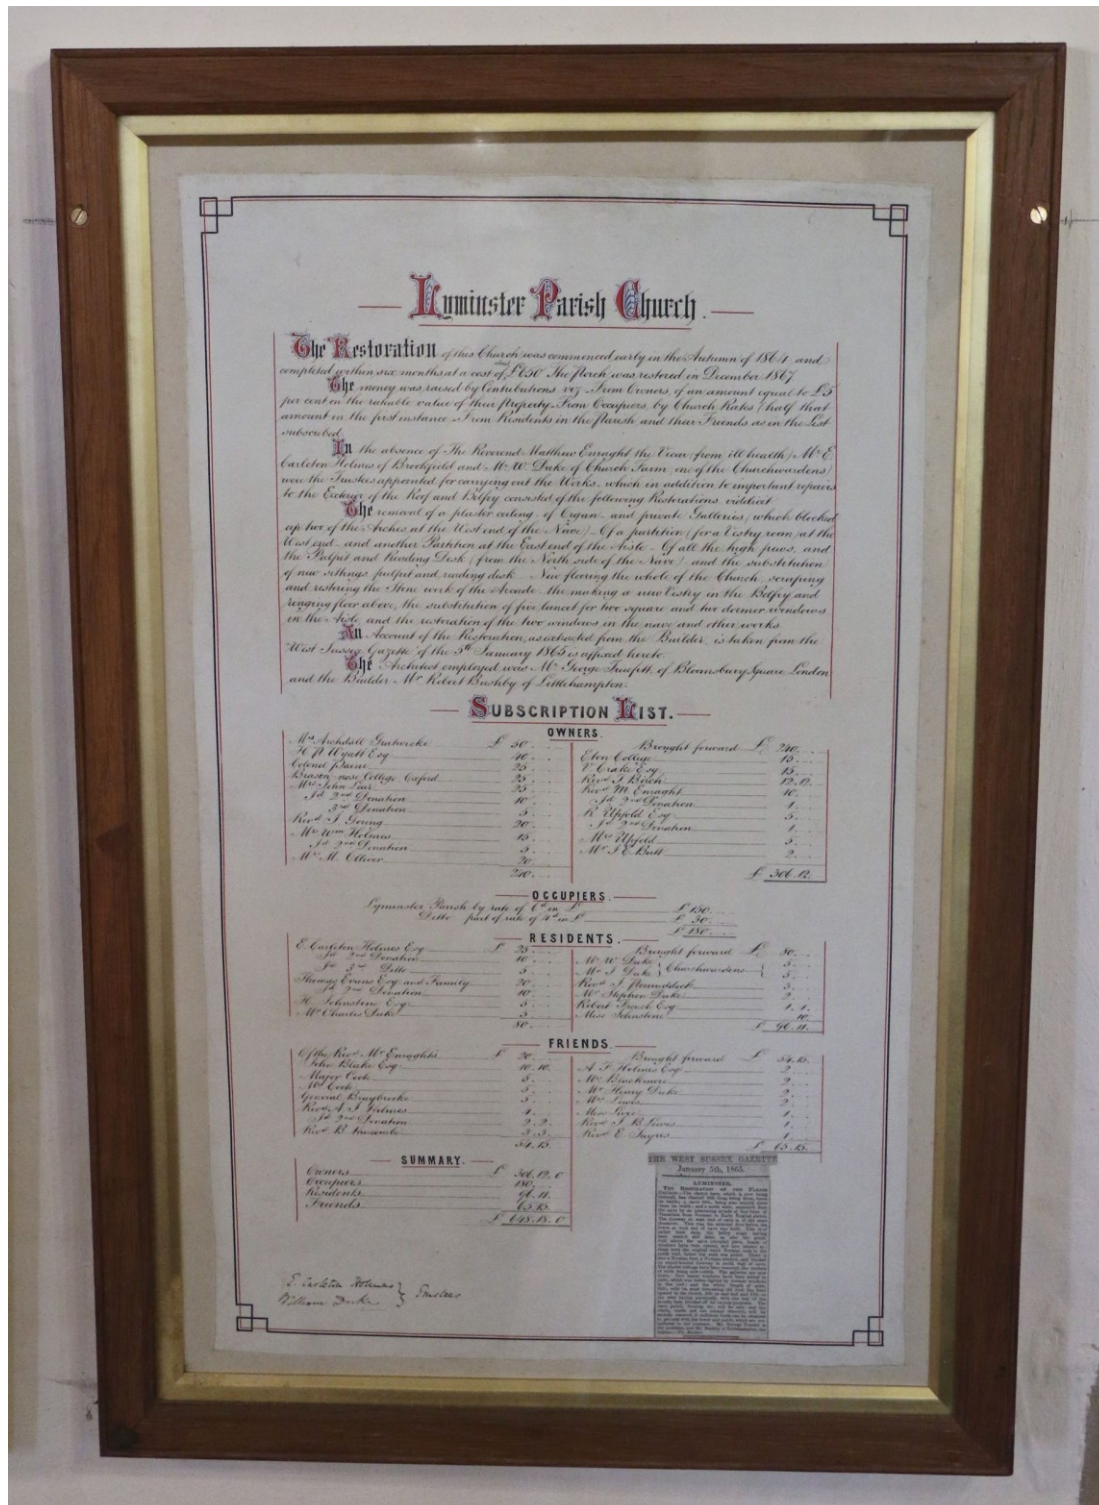 Lyminster Parish Church.
The Restoration of this Church was commenced early in the Autumn of 1864 and
completed within six months at a cost of about £650 The Porch was restored in December 1867
The money was raised by Contributions viz. From Owners of an amount equal to £5
per cent on the rateable value of their Property. From Occupiers by Church Rates (half that
amount in the first instance. From Residents in the Parish and their Friends as in the List
subscribed.
In the absence of The Reverend Matthew Enraght the Vicar (from ill health) Mr. E.
Carleton Holmes of Brookfield and Mr. W. Duke of Church Farm (one of the Churchwardens)
were the Trustees appointed for carrying out the Works, which in addition to important repairs
to the Exterior of the Roof and Belfry consisted of the following Restorations, videlicit
The removal of a plaster ceiling, of Organ and private Galleries, (which blocked
up two of the Arches at the West end of the Nave) Of a partition (for a Vestry room) at the
West end and another Partition at the East end of the Aisle. Of all the high pews, and
the Pulpit and Reading Desk (from the North side of the Nave) and the substitution
of new sittings, pulpit and reading desk. New flooring the whole of the Church, scraping
and restoring the Stone work of the Arcade, the making a new Vestry in the Belfry and
ringing floor above, the substitution of five lancet for two square and two dormer windows
in the Aisle, and the restoration of the two windows in the nave and other works.
An Account of the Restoration, as extracted from the Builder, is taken from the
"West Sussex Gazette" of the 5th January 1865 is affixed hereto.
The Architect employed was Mr. George Truefitt, of Bloomsbury Square London
and the Builder Mr. Robert Bushby of Littlehampton.
Subscription List.
OWNERS.
Mrs. Archdall Gratwicke £ 50
H. P. Wyatt Esq 40
Colonel Paine 25
Brasen-nose College Oxford 25
Mrs. John Lear 25
Jd 2nd Donation 10
3rd Donation 5
Revd. J. Goring 20
Mr. Wm Holmes 15
Jd 2nd Donation 5
Mr. M. Olliver 20
240
Brought forward £ 240
Eton College 15
V. Crake Esq 15
Revd. J. Birch 12.12
Revd. M. Enraght 10
Jd 2nd Donation 1
R. Upfold Esq 5
Jd 2nd Donation 1
Mrs. Upfold 5
Mr. J. E. Butt 2
£ 306.12
OCCUPIERS.
Lyminster Parish by rate of 6d in £ £ 150
Ditto part of rate of 4d in £ £ 30
£ 180
RESIDENTS.
E. Carleton Holmes Esq £ 25
Jd 2nd Donation 10
Jd 3rd Ditto 5
Thomas Evans Esq and Family 20
Jd 2nd Donation 10
H. Johnstine Esq 5
Mr. Charles Duke 5
80
Brought forward £ 80
Mr. W. Duke } Churchwardens { 5
Mr. J. Duke 5
Revd. J. 3
Mr. Stephen Duke 2
Robert French Esq 1.1
Miss Johnstine 10
£ 96.11
FRIENDS.
Of the Revd. Mr. Enraght's £ 20
John Blake Esq 10.10
Major Cook 5
Mrs. Cook 5
General Braybrooke 5
Revd. A. F. Holmes 4
Jd 2nd Donation 2.2
Revd. B. 3.3
54.15
Brought forward £ 54.15
A. F. Holmes Esq 2
Mr. 2
Mr. Henry Duke 2
Mrs. Lewis 2
Miss 1
Revd. J. B. Lewis 1
Revd. E. Sayres 1
£ 65.15
SUMMARY.
Owners £ 306.12.0
Occupiers 180
Residents 96.11
Friends 65.15
£ 648.18.0
E. Carleton Holmes }
William Duke } Trustees
THE WEST SUSSEX GAZETTE
January 5th, 1865.
LYMINSTER.